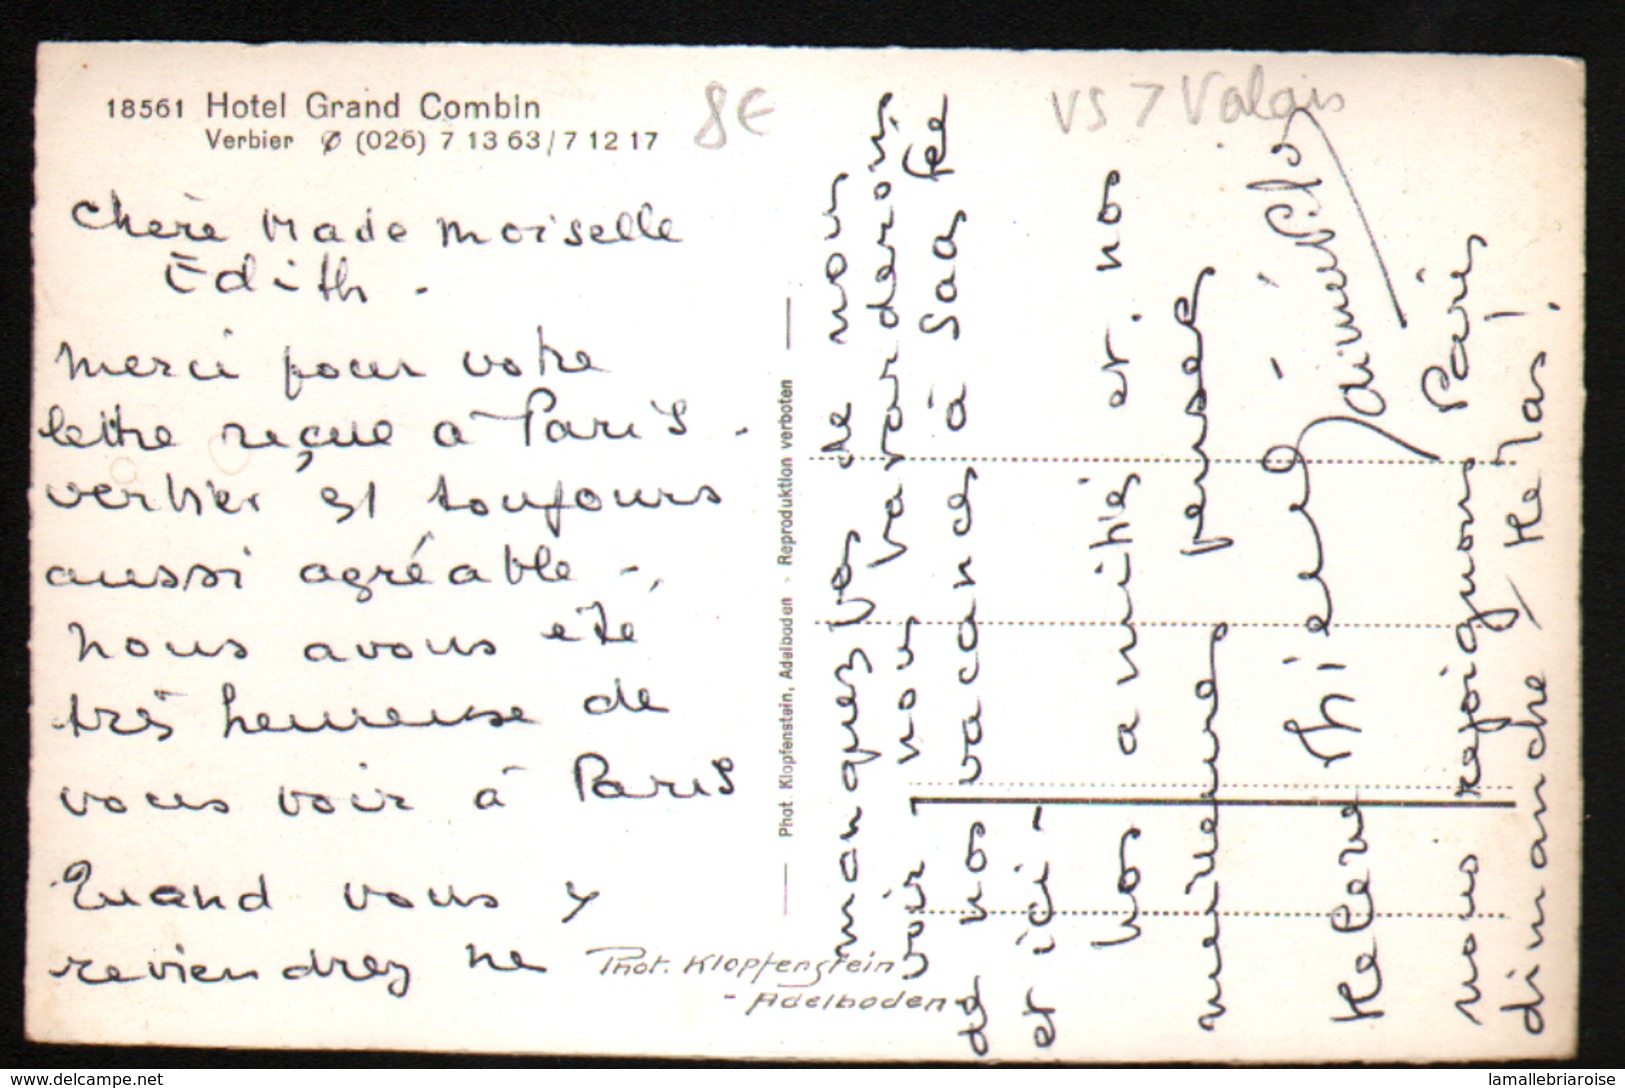 18561 Hotel Grand Combin
Verbier (026) 7 13 63/7 12 17
8€
VS 7 Valais
chère Made moiselle
Edith.
merci pour votre
lettre reçue à Paris.
verbier est toujours
aussi agréable -,
nous avons été
très heureuse de
vous voir à Paris
Quand vous y
reviendrez ne
manquez pas de nous
voir. nous vous dirons
de nos vacances à Saas fée
et ici -
nos amitiés et nos
meilleures pensées
Helene
nous rejoignons Paris
dimanche / Helas!
Phot. Klopfenstein, Adelboden - Reproduktion verboten
Phot. Klopfenstein
- Adelboden
lamallebriaroise
www.delcampe.net